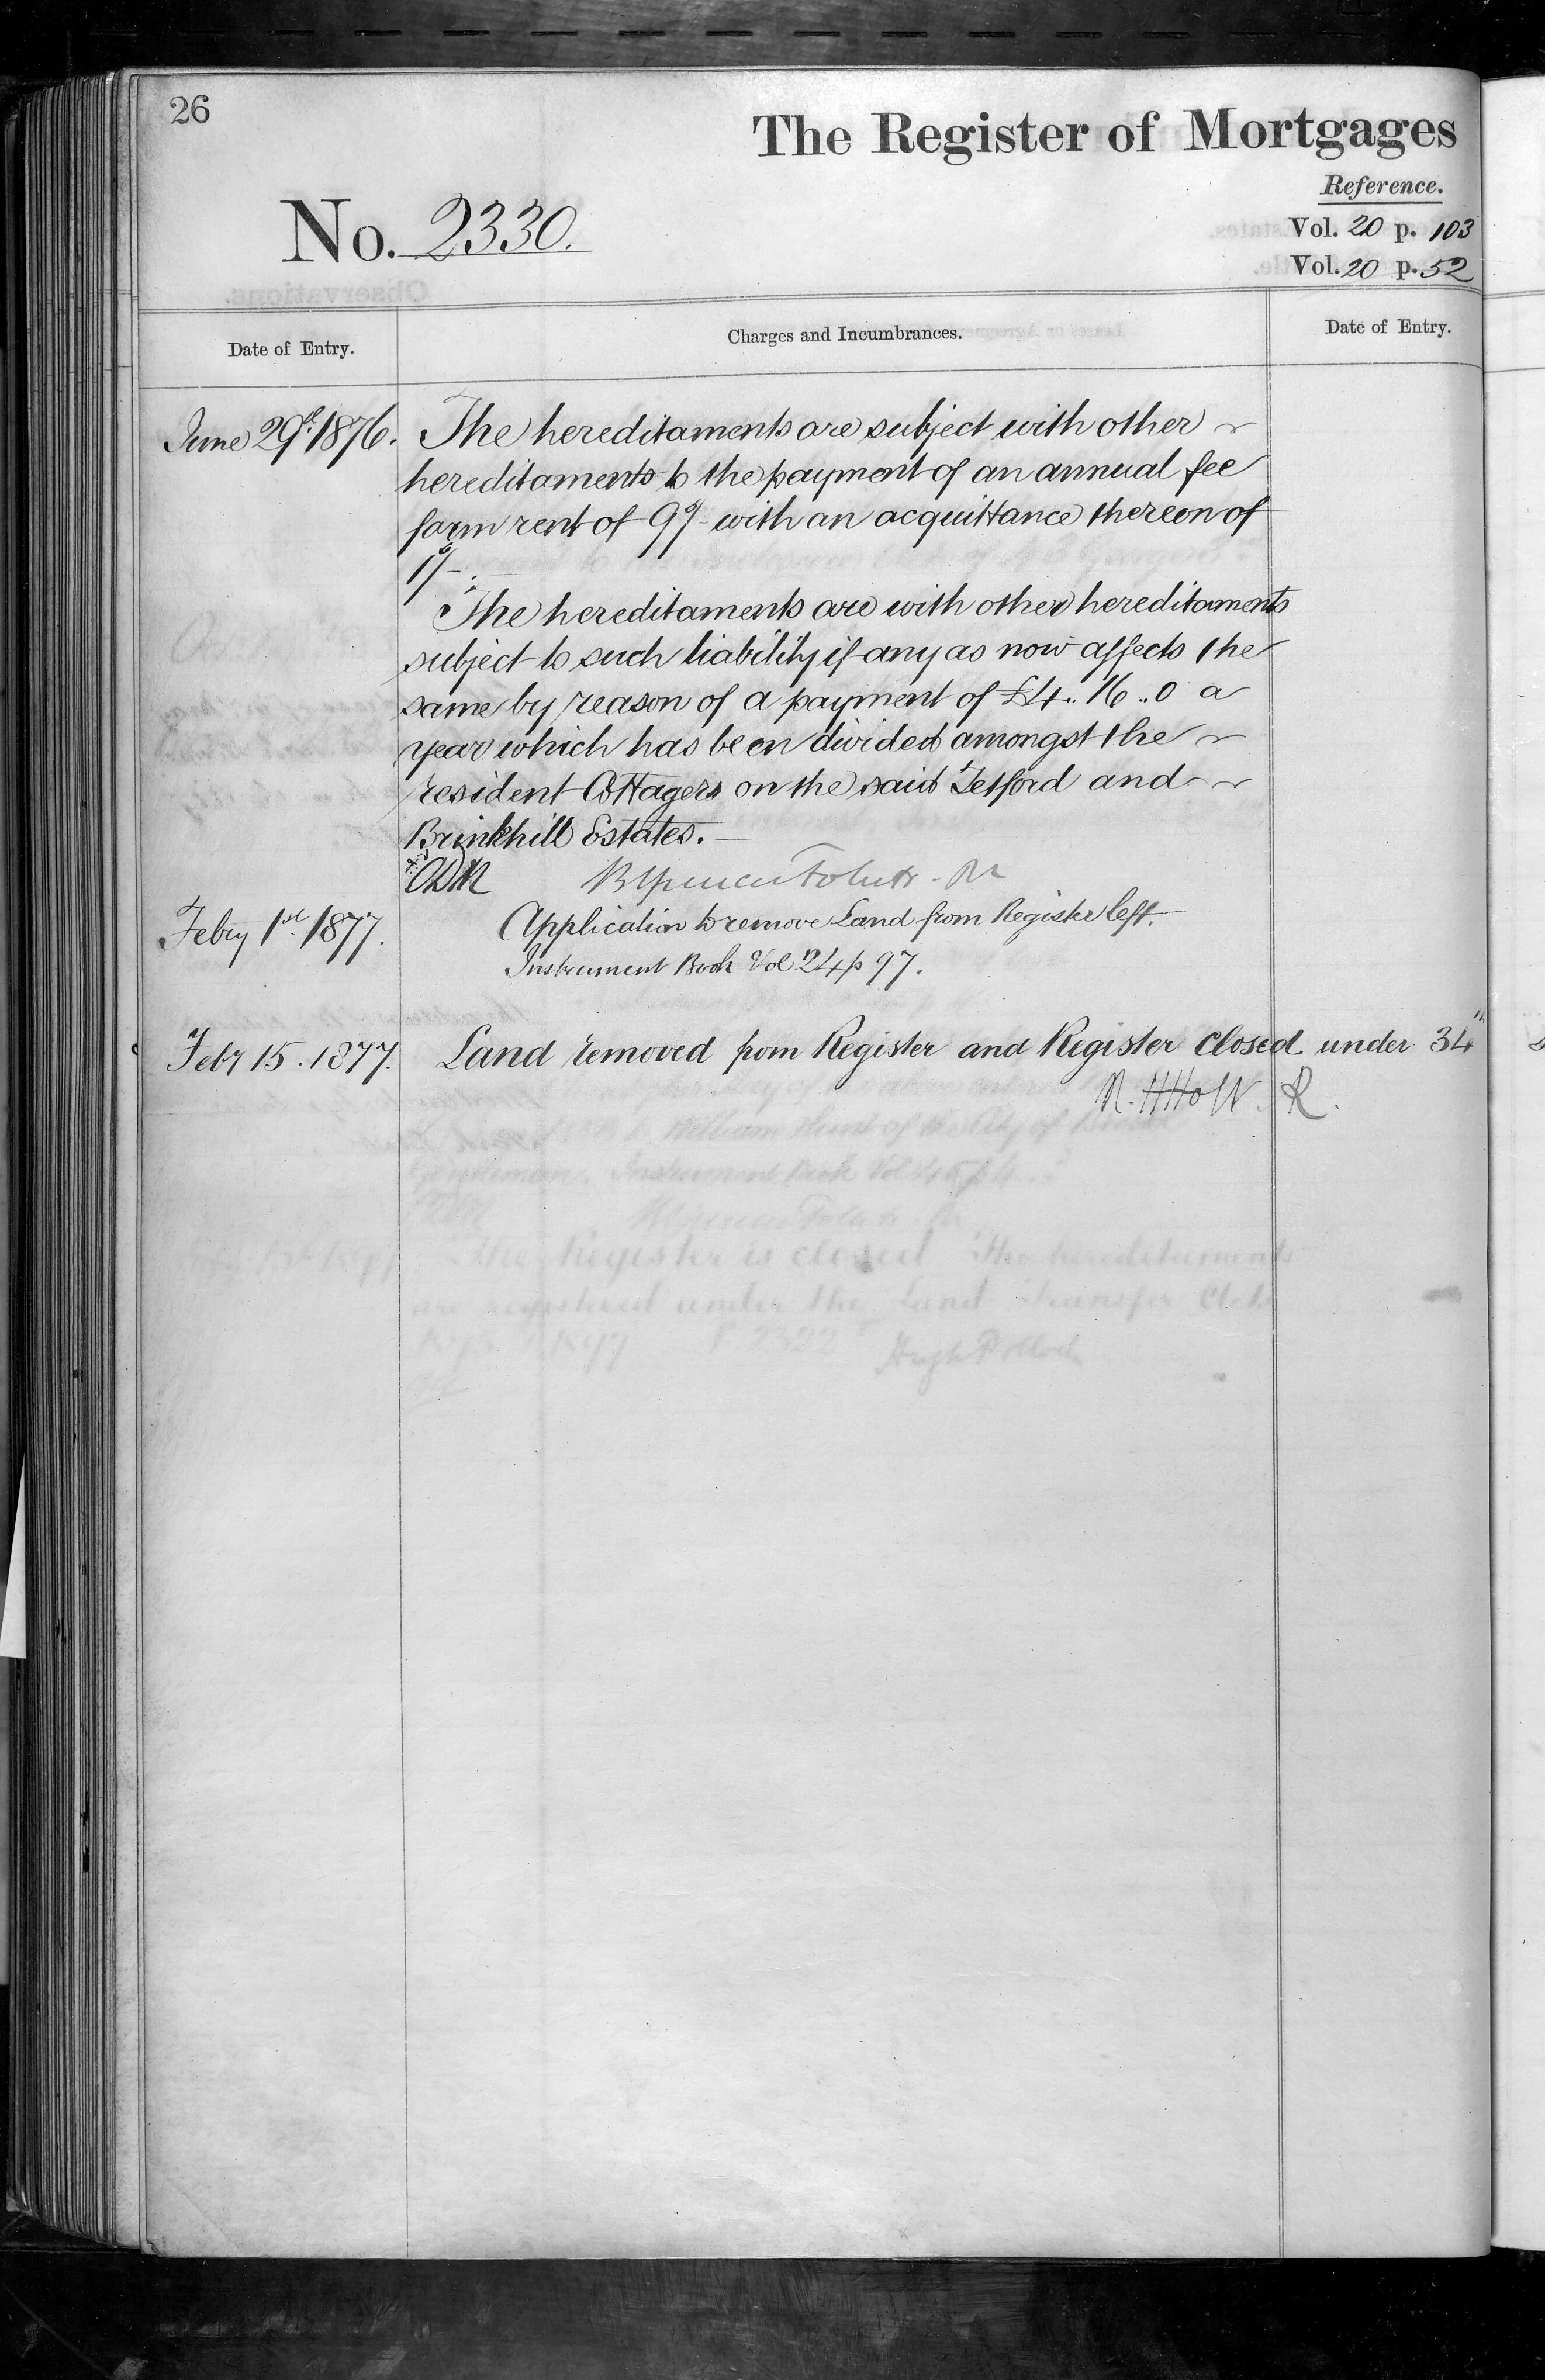 26
The Register of Mortgages
Reference.
No. 2330.
Vol. 20 p. 103
Vol. 20 p. 52
Date of Entry.
Charges and Incumbrances.
Date of Entry.
June 29th 1876. The hereditaments are subject with other
hereditaments to the payment of an annual fee
farm rent of 9d with an acquittance thereon of
1d
The hereditaments are with other hereditaments
subject to such liability if any as now affects the
same by reason of a payment of £4..16..0 a
year which has been divided amongst the
resident Cottagers on the said Tetford and
Brinkhill Estates.
Feby 1st 1877. Application to remove Land from Register left.
Instrument Book Vol 24 p 97.
Febr 15. 1877. Land removed from Register and Register closed under 34
R. H Holt. R.